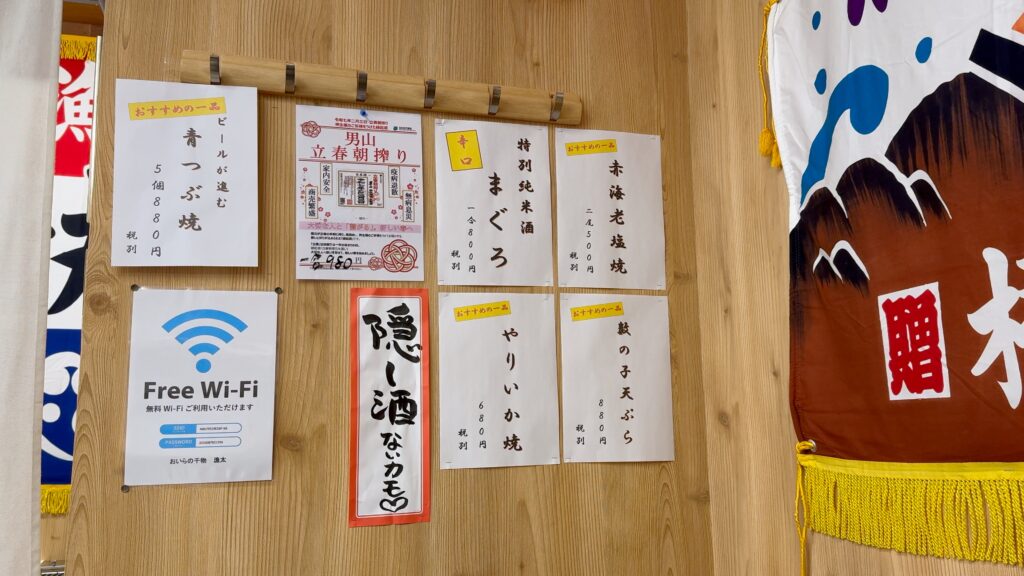 おすすめの一品
ビールが進む
青つぶ焼
5個880円
税別
男山
立春朝搾り
家内安全
商売繁盛
疫病退散
無病息災
980円
辛口
特別純米酒
まぐろ
一合800円
税別
おすすめの一品
赤海老塩焼
二尾500円
税別
Free Wi-Fi
無料 Wi-Fi ご利用いただけます
SSID
PASSWORD
おいらの干物 漁太
隠し酒ないカモ♡
おすすめの一品
やりいか焼
680円
税別
おすすめの一品
数の子天ぷら
880円
税別
贈